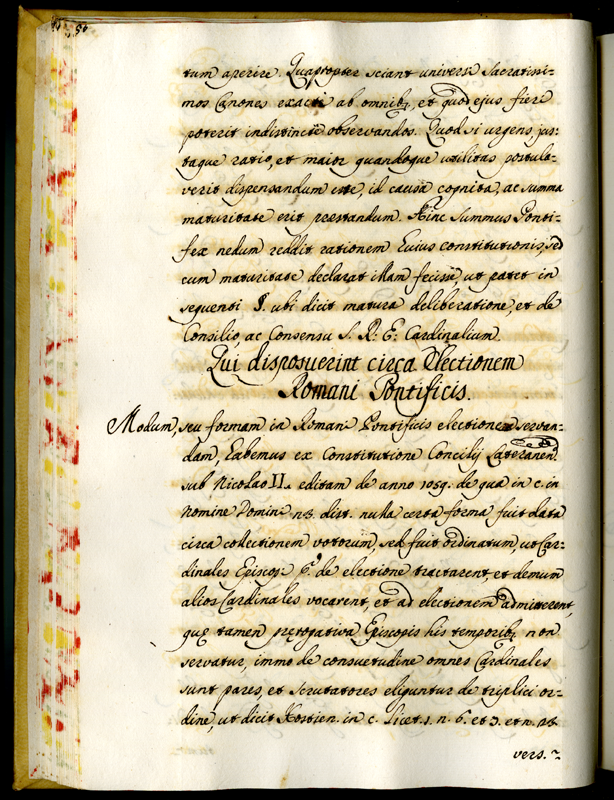 tum aperire. Quapropter sciant universi Sacratissi-
mos Canones exacte ab omnibꝫ, et quod ejus fieri
poterit indistincte observandos. Quod si urgens jus:
taque ratio, et maior quandoque utilitas postula-
verit dispensandum esse, id causa cognita, ac summa
maturitate erit prestandum. Hinc Summus Ponti-
fex nedum reddit rationem huius constitutionis, sed
cum maturitate declarat illam fecisse, ut patet in
sequenti §. ubi dicit matura deliberatione, et de
Consilio, ac Consensu S. R: E: Cardinalium.
Qui disposuerint circa Electionem
Romani Pontificis.
Modum, seu formam in Romani Pontificis electione servan-
dam, habemus ex Constitutione Concilij Lateranen:
sub Nicolao II. editam de anno 1059. de qua in c. in
nomine Domini 23. dist. nulla certa forma fuit data
circa collectionem votorum, sed fuit ordinatum, ut Car-
dinales Episcopi p.º de electione tractarent, et demum
alios Cardinales vocarent, et ad electionem admitterent,
quę tamen prerogativa Episcopis his temporibꝫ non
servatur, immo de consuetudine omnes Cardinales
sunt pares, et Scrutatores eliguntur de triplici or-
dine, ut dicit Hostien. in c. licet. 1. n. 6. et 7. et n.
vers.